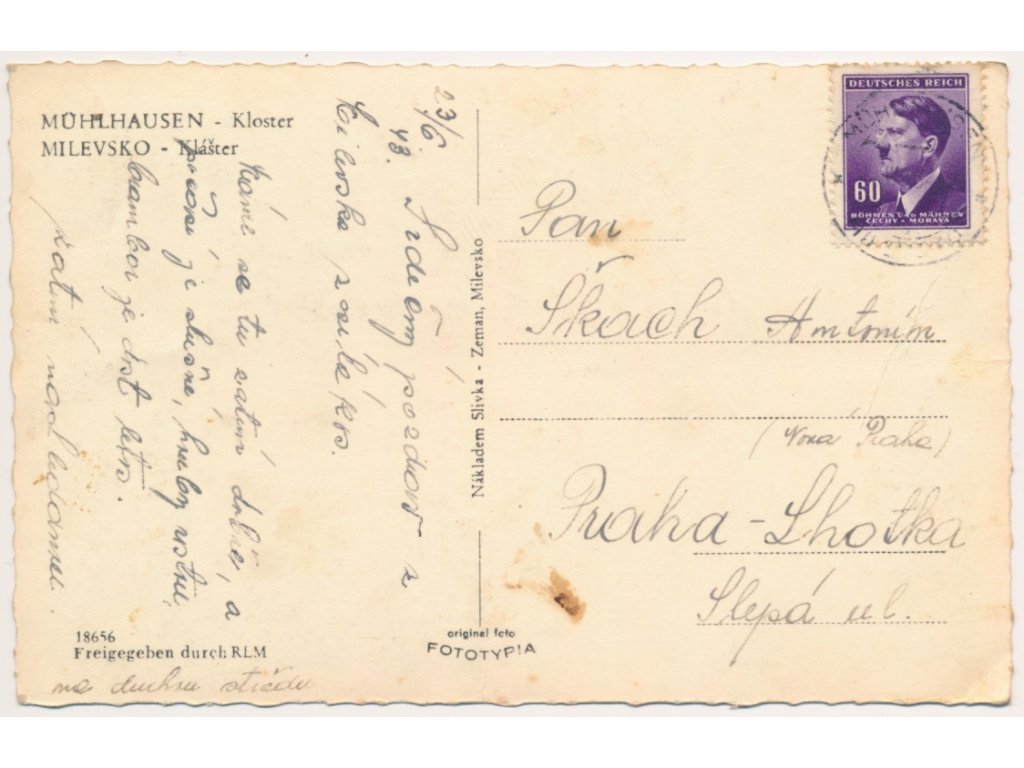 MÜHLHAUSEN - Kloster
MILEVSKO - Klášter
23/6. 43.
Srdečný pozdrav z
Milevska zasílá
Máme se tu zatím dobře, a
počasí je slušné,
brambor je dost letos.
zatím nashledanou.
na druhou středu
18656
Freigegeben durch RLM
Nákladem Slivka - Zeman, Milevsko
original foto
FOTOTYPIA
DEUTSCHES REICH
60
BÖHMEN U-D MÄHREN
ČECHY A MORAVA
Pan
Škach Antonín
(Nova Praha)
Praha-Lhotka
Slepá ul.